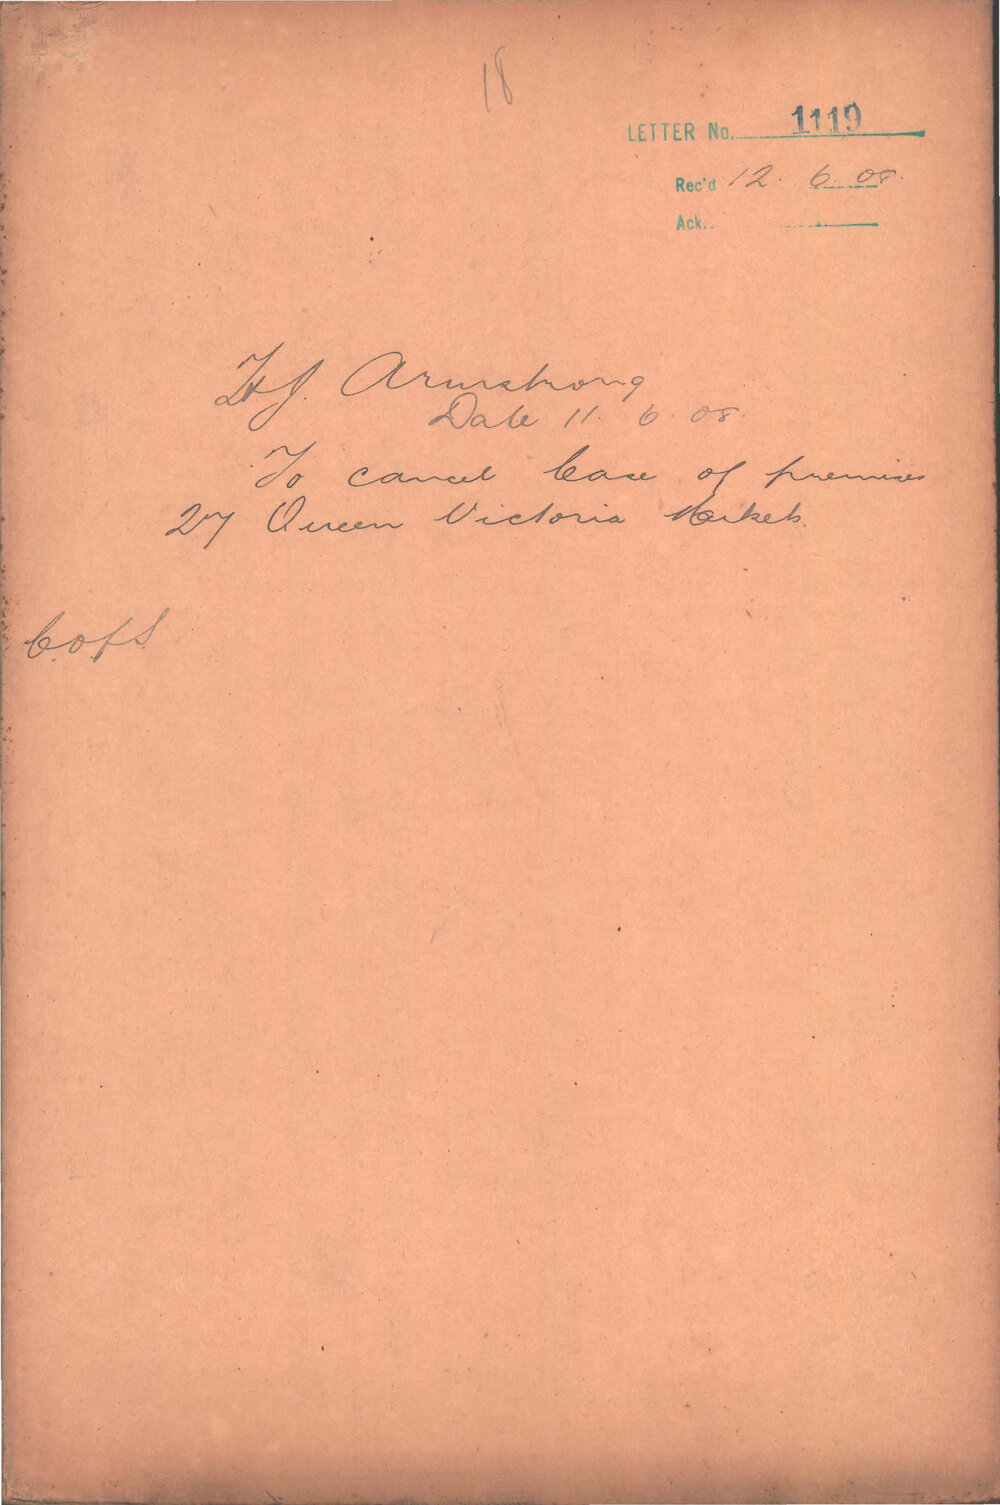 18
LETTER No. 1119
Rec'd 12. 6. 08.
Ack.
H J. Armstrong
Date 11. 6. 08.
To cancel lease of premises
27 Queen Victoria Markets.
C. of S.